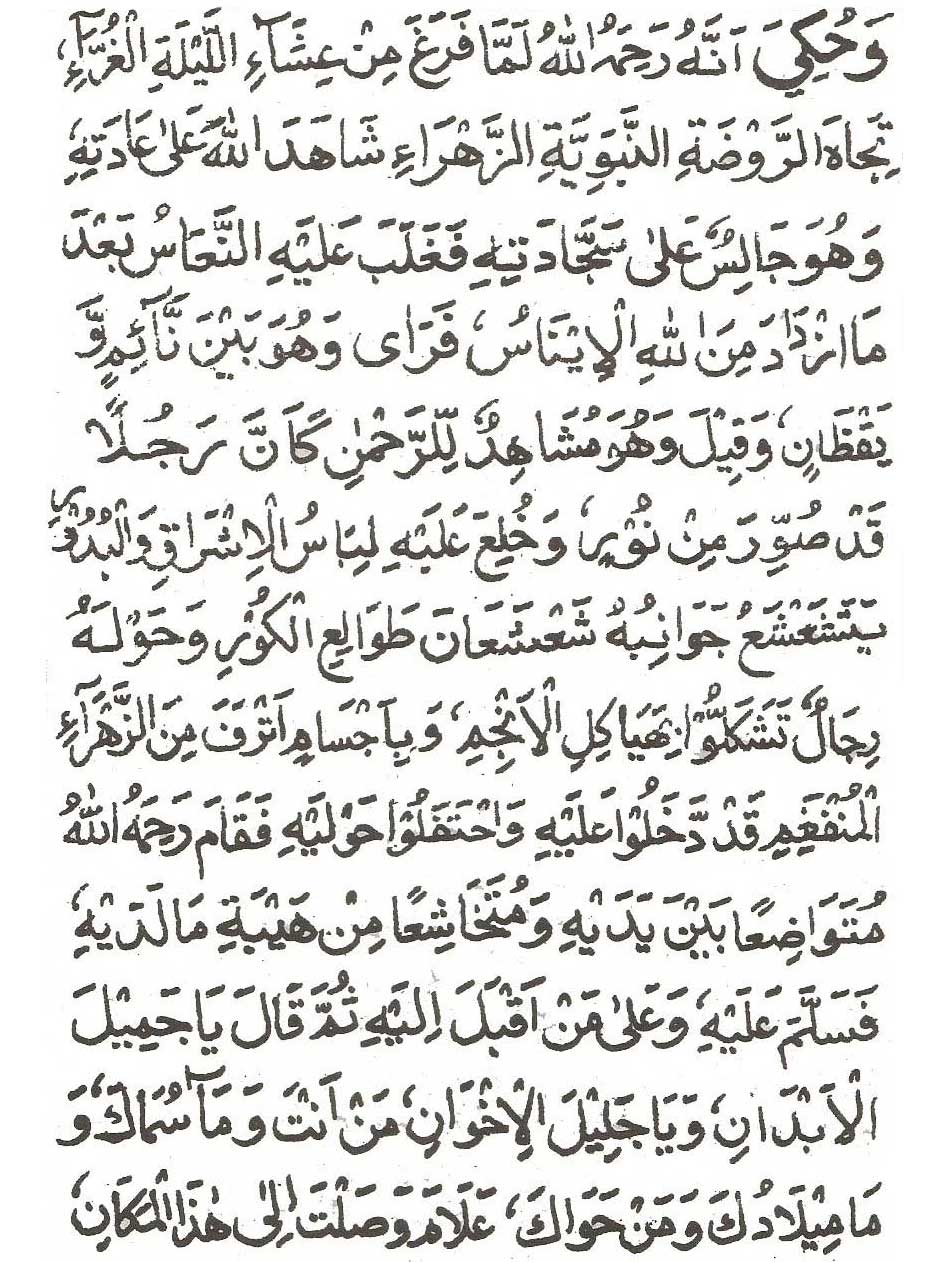 وَحُكِيَ اَنَّهُ رَحِمَهُ اللّٰهُ لَمَّا فَرَغَ مِنْ عِشَآءِ اللَّيْلَةِ الْغُرَّآءِ،
تِجَاهَ الرَّوْضَةِ النَّبَوِيَّةِ الزَّهْرَاءِ شَاهَدَ اللّٰهَ عَلٰى عَادَتِهِ،
وَهُوَ جَالِسٌ عَلٰى سَجَّادَتِهِ فَغَلَبَ عَلَيْهِ النَّعَاسُ بَعْدَ
مَا ازْدَادَ مِنَ اللّٰهِ الْاِيْنَاسُ، فَرَاٰى وَهُوَ بَيْنَ نَّآئِمٍ وَّ
يَقْظَانٍ، وَقِيْلَ وَهُوَ مُشَاهِدٌ لِّلرَّحْمٰنِ كَاَنَّ رَجُلًا
قَدْ صُوِّرَ مِنْ نُوْرٍ، وَخُلِعَ عَلَيْهِ لِبَاسُ الْاِشْرَاقِ وَالْبُدُوْرِ
يَتَشَعْشَعُ جَوَانِبُهُ شَعْشَعَانَ طَوَالِعِ الْكَوْثَرِ وَحَوْلَهُ
رِجَالٌ تَشَكَّلُوْا بِهَيَاكِلِ الْاَنْجُمِ، وَبِاَجْسَامٍ اَتْرَفَ مِنَ الزَّهْرَآءِ
الْمُنْفَغِمِ قَدْ دَّخَلُوْا عَلَيْهِ وَاحْتَفَلُوْا حَوْلَيْهِ فَقَامَ رَحِمَهُ اللّٰهُ
مُتَوَاضِعًا بَيْنَ يَدَيْهِ وَمُتَخَاشِعًا مِنْ هَيْبَةِ مَا لَدَيْهِ،
فَسَلَّمَ عَلَيْهِ، وَعَلٰى مَنْ اَقْبَلَ اِلَيْهِ ثُمَّ قَالَ يَا جَمِيْلَ
الْاَبْدَانِ، وَيَا جَلِيْلَ الْاِخْوَانِ، مَنْ اَنْتَ وَمَآ سْمَاكَ، وَ
مَا مِيْلَادُكَ وَمَنْ حَوَاكَ، عَلَامَ وَصَلْتَ اِلٰى هٰذَا الْمَكَانِ